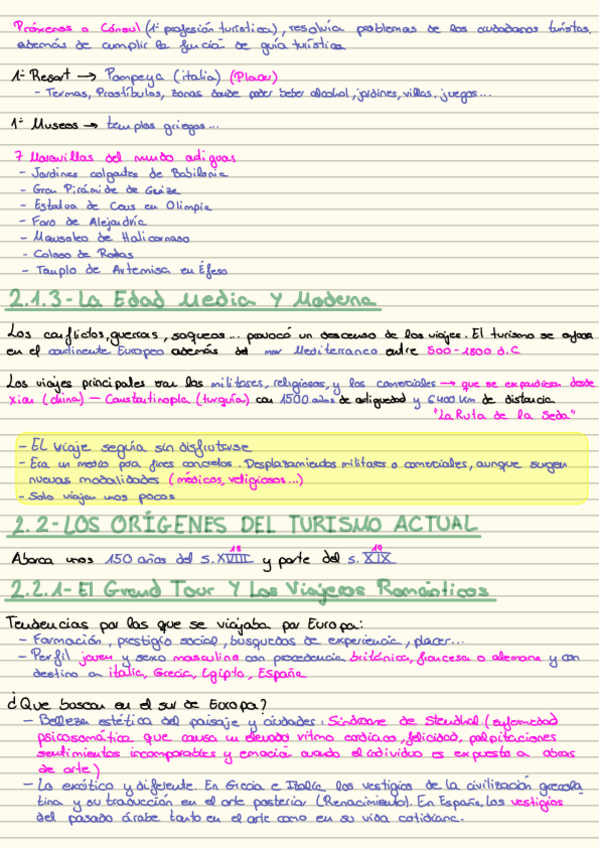 Próxenos o Cónsul (1ª profesión turística), resolvía problemas de los ciudadanos turistas,
además de cumplir la función de guía turística
1º Resort → Pompeya (italia) (Placer)
- Termas, Prostíbulos, zonas donde poder beber alcohol, jardines, villas, juegos...
1º Museos → templos griegos...
7 Maravillas del mundo antiguas
- Jardines colgantes de Babilonia
- Gran Pirámide de Guiza
- Estatua de Ceus en Olimpia
- Faro de Alejandría
- Mausoleo de Halicarnaso
- Coloso de Rodas
- Templo de Artemisa en Éfeso
2.1.3- La Edad Media Y Moderna
Los conflictos, guerras, saqueos... provocó un descenso de los viajes. El turismo se
en el continente Europeo además del mar Mediterraneo entre 500-1800 d.C
Los viajes principales eran los militares, religiosos, y los comerciales → que se expandieron desde
Xian (china) — Constantinopla (turquía) con 1500 años de antiguedad y 6400 Km de distancia
"La Ruta de la Seda"
- EL viaje seguía sin disfrutarse
- Era un medio para fines concretos. Desplazamientos militares o comerciales, aunque surgen
nuevas modalidades (médicos, religiosos...)
- Solo viajan unos pocos
2.2- LOS ORÍGENES DEL TURISMO ACTUAL
18 19
Abarca unos 150 años del s. XVIII y parte del s. XIX
2.2.1- El Grand Tour Y Los Viajeros Románticos
Tendencias por las que se viajaba por Europa:
- Formación, prestigio social, busquedas de experiencia, placer...
- Perfil joven y sexo masculino con procedencia británica, francesa o alemana y con
destino a italia, Grecia, Egipto, España
¿Que buscan en el sur de Europa?
- Belleza estética del paisaje y ciudades: Síndrome de Stendhal (enfermedad
psicosomática que causa un elevado ritmo cardiaco, felicidad, palpitaciones
sentimientos incomparables y emoción cuando el individuo es expuesto a obras
de arte)
- Lo exótico y diferente. En Grecia e Italia los vestigios de la civilización grecola
tina y su traducción en el arte posterior (Renacimiento). En España, los vestigios
del pasado árabe tanto en el arte como en su vida cotidiana.